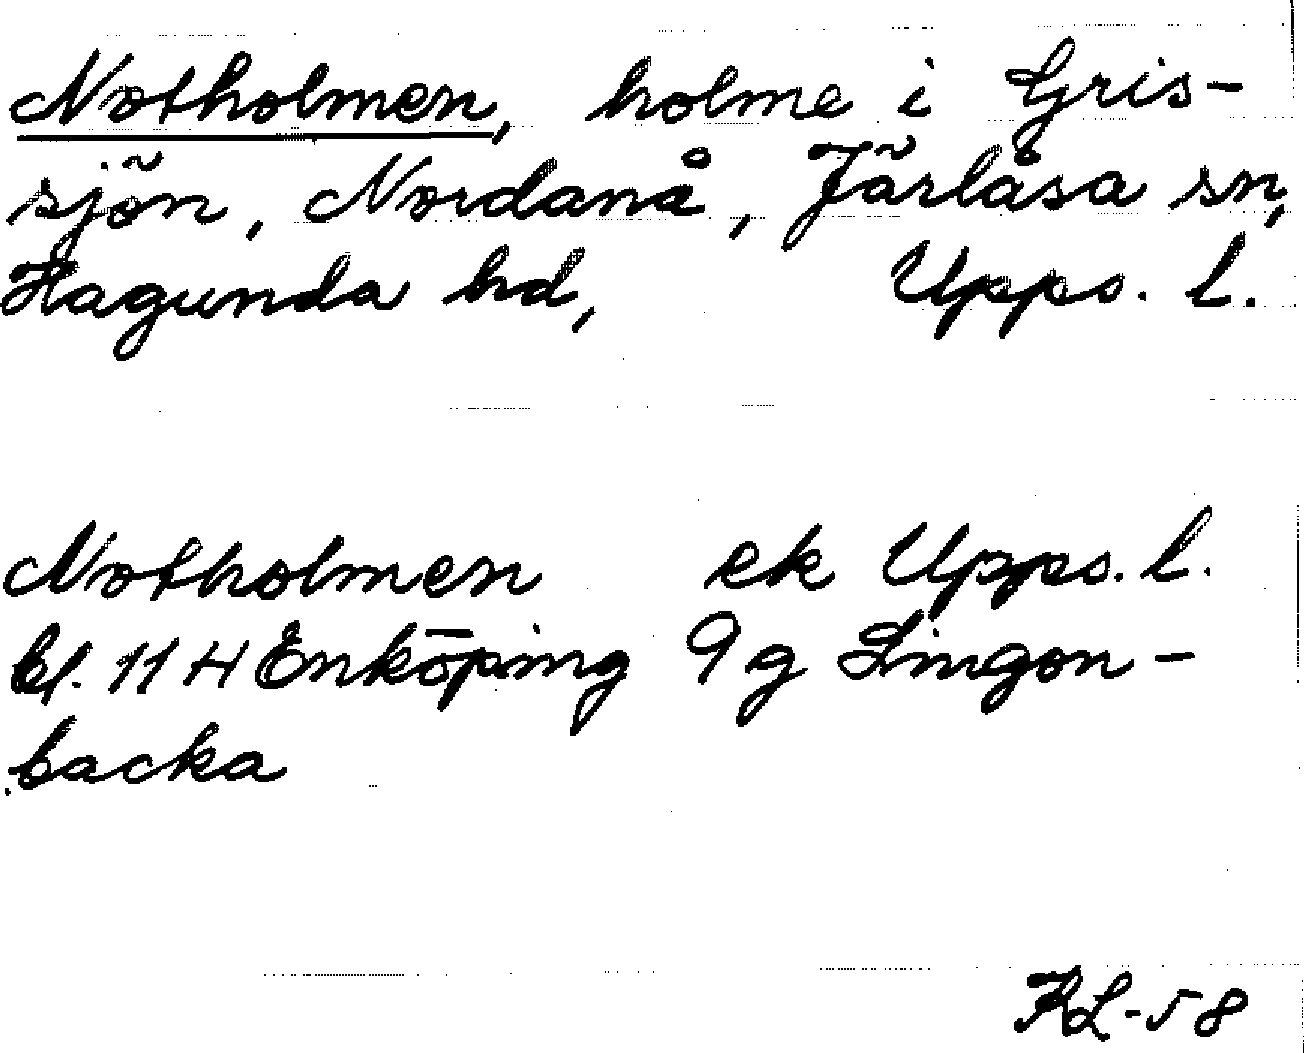 Notholmen, holme i Gris-
sjön, Nordanå, Järlåsa sn,
Hagunda hd, Upps. l.
Notholmen ek Upps. l.
bl. 11 H Enköping 9 g Lingon-
backa
KL-58